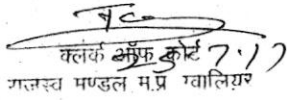 क्लर्क ऑफ कोर्ट
राजस्व मण्डल म.प्र ग्वालियर